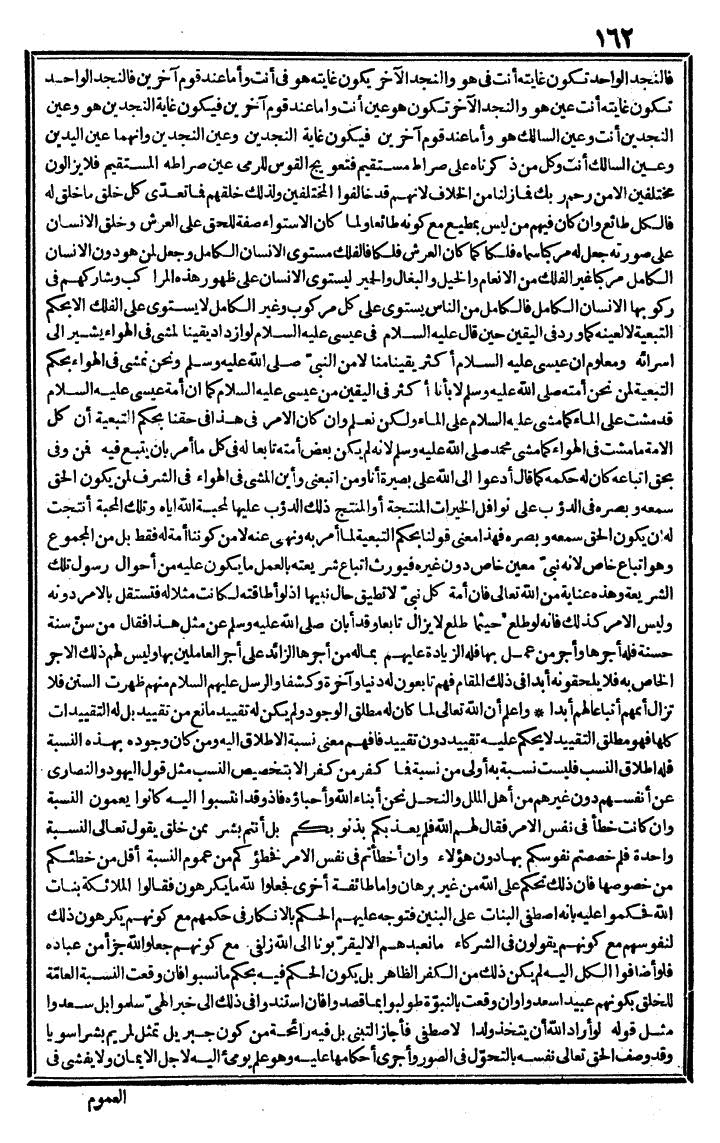 ١٦٢
فالنجد الواحد تكون غايته أنت فى هو والنجد الآخر يكون غايته هو فى أنت وأما عند قوم آخرين فالنجد الواحد
تكون غايته أنت عين هو والنجد الآخر تكون هو عين أنت واما عند قوم آخرين فيكون غاية النجدين هو وعين
النجدين أنت وعين السالك هو وأما عند قوم آخرين فيكون غاية النجدين وعين النجدين وانهما عين اليدين
وعين السالك أنت وكل من ذكرناه على صراط مستقيم فتعويج القوس للرمى عين صراطه المستقيم فلا يزالون
مختلفين الا من رحم ربك فما زلنا من الخلاف لانهم قد خالفوا المختلفين ولذلك خلقهم فما تعدّى كل خلق ما خلق له
فالكل طائع وان كان فيهم من ليس بمطيع مع كونه طائعا ولما كان الاستواء صفة للحق على العرش وخلق الانسان
على صورته جعل له مركبا سماه فلكا كما كان العرش فلكا فالفلك مستوى الانسان الكامل وجعل لمن هو دون الانسان
الكامل مركبا غير الفلك من الانعام والخيل والبغال والحمير ليستوى الانسان على ظهور هذه المراكب وشاركهم فى
ركوبها الانسان الكامل فالكامل من الناس يستوى على كل مركوب وغير الكامل لا يستوى على الفلك الا بحكم
التبعية لا لعينه كما ورد فى اليقين حين قال عليه السلام فى عيسى عليه السلام لو ازداد يقينا لمشى فى الهواء يشير الى
اسرائه ومعلوم ان عيسى عليه السلام أكثر يقينا منا لا من النبىّ صلى الله عليه وسلم ونحن نمشى فى الهواء بحكم
التبعية لمن نحن أمته صلى الله عليه وسلم لا بأنا أكثر فى اليقين من عيسى عليه السلام كما ان أمة عيسى عليه السلام
قد مشت على الماء كما مشى عليه السلام على الماء ولكن نعلم وان كان الامر فى هذا فى حقنا بحكم التبعية أن كل
الامة ما مشت فى الهواء كما مشى محمد صلى الله عليه وسلم لانه لم يكن بعض أمته تابعا له فى كل ما أمر بان يتبع فيه فمن وفى
بحق اتباعه كان له حكمه كما قال أدعوا الى الله على بصيرة أنا ومن اتبعنى وأين المشى فى الهواء فى الشرف لمن يكون الحق
سمعه وبصره فى الدؤب على نوافل الخيرات المنتجة أو المنتج ذلك الدؤب عليها لمحبة الله اياه وتلك المحبة أنتجت
له ان يكون الحق سمعه وبصره فهذا معنى قولنا بحكم التبعية لما أمر به ونهى عنه لا من كوننا أمة له فقط بل من المجموع
وهو اتباع خاص لانه نبىّ معين خاص دون غيره فيورث اتباع شريعته بالعمل ما يكون عليه من أحوال رسول تلك
الشريعة وهذه عناية من الله تعالى فان أمة كل نبىّ لا تطيق حال نبيها اذ لو أطاقته لكانت مثلا له فتستقل بالامر دونه
وليس الامر كذلك فانه لو طلع حيثما طلع لا يزال تابعا وقد أبان صلى الله عليه وسلم عن مثل هذا فقال من سنّ سنة
حسنة فله أجرها وأجر من عمل بها فله الزيادة عليهم بماله من أجرها الزائد على أجر العاملين بها وليس لهم ذلك الاجر
الخاص به فلا يلحقونه أبدا فى ذلك المقام فهم تابعون له دنيا وآخرة وكشفا والرسل عليهم السلام منهم ظهرت السنن فلا
تزال أممهم أتباعا لهم أبدا * واعلم أن الله تعالى لما كان له مطلق الوجود ولم يكن له تقييد مانع من تقييد بل له التقييدات
كلها فهو مطلق التقييد لا يحكم عليه تقييد دون تقييد فافهم معنى نسبة الاطلاق اليه ومن كان وجوده بهذه النسبة
فله اطلاق النسب فليست نسبة به أولى من نسبة فما كفر من كفر الا بتخصيص النسب مثل قول اليهود والنصارى
عن أنفسهم دون غيرهم من أهل الملل والنحل نحن أبناء الله وأحباؤه فاذ وقد انتسبوا اليه كانوا يعمون النسبة
وان كانت خطأ فى نفس الامر فقال لهم الله فلم يعذبكم بذنوبكم بل أنتم بشر ممن خلق يقول تعالى النسبة
واحدة فلم خصصتم نفوسكم بها دون هؤلاء وان أخطأتم فى نفس الامر فخطؤكم من عموم النسبة أقل من خطئكم
من خصوصها فان ذلك تحكم على الله من غير برهان واما طائفة أخرى فجعلوا لله ما يكرهون فقالوا الملائكة بنات
الله فحكموا عليه بانه اصطفى البنات على البنين فتوجه عليهم الحكم بالانكار فى حكمهم مع كونهم يكرهون ذلك
لنفوسهم مع كونهم يقولون فى الشركاء ما نعبدهم الا ليقرّبونا الى الله زلفى مع كونهم جعلوا لله جزأ من عباده
فلو أضافوا الكل اليه لم يكن ذلك من الكفر الظاهر بل يكون الحكم فيه بحكم ما نسبوا فان وقعت النسبة العامّة
للخلق بكونهم عبيدا سعدوا وان وقعت بالنبوّة طولبوا بما قصدوا فان استندوا فى ذلك الى خبر الهىّ سلموا بل سعدوا
مثل قوله لو أراد الله أن يتخذ ولدا لاصطفى فأجاز التبنى بل فيه رائحة من كون جبريل تمثل لمريم بشرا سويا
وقد وصف الحق تعالى نفسه بالتحوّل فى الصور وأجرى أحكامها عليه وهو علم يومئ اليه لاجل الايمان ولا يفشى فى
العموم